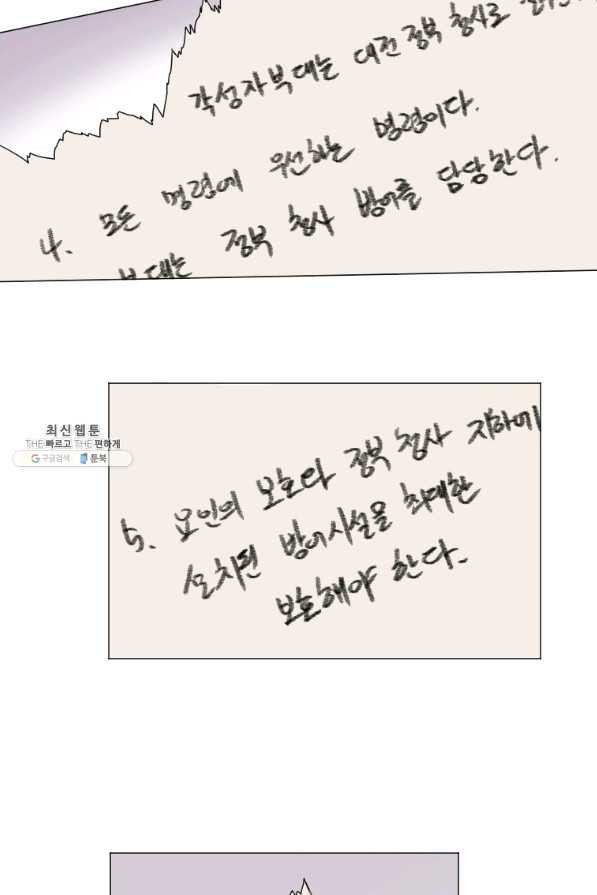 각성자부대는 대전 정부 청사로
4. 모든 명령에 우선하는 명령이다.
부대는 정부 청사 방어를 담당한다.
최신웹툰
THE 빠르고 THE 편하게
구글검색 툰북
5. 요인의 보호다 정부 청사 지하에
설치된 방어시설을 최대한
보호해야 한다.